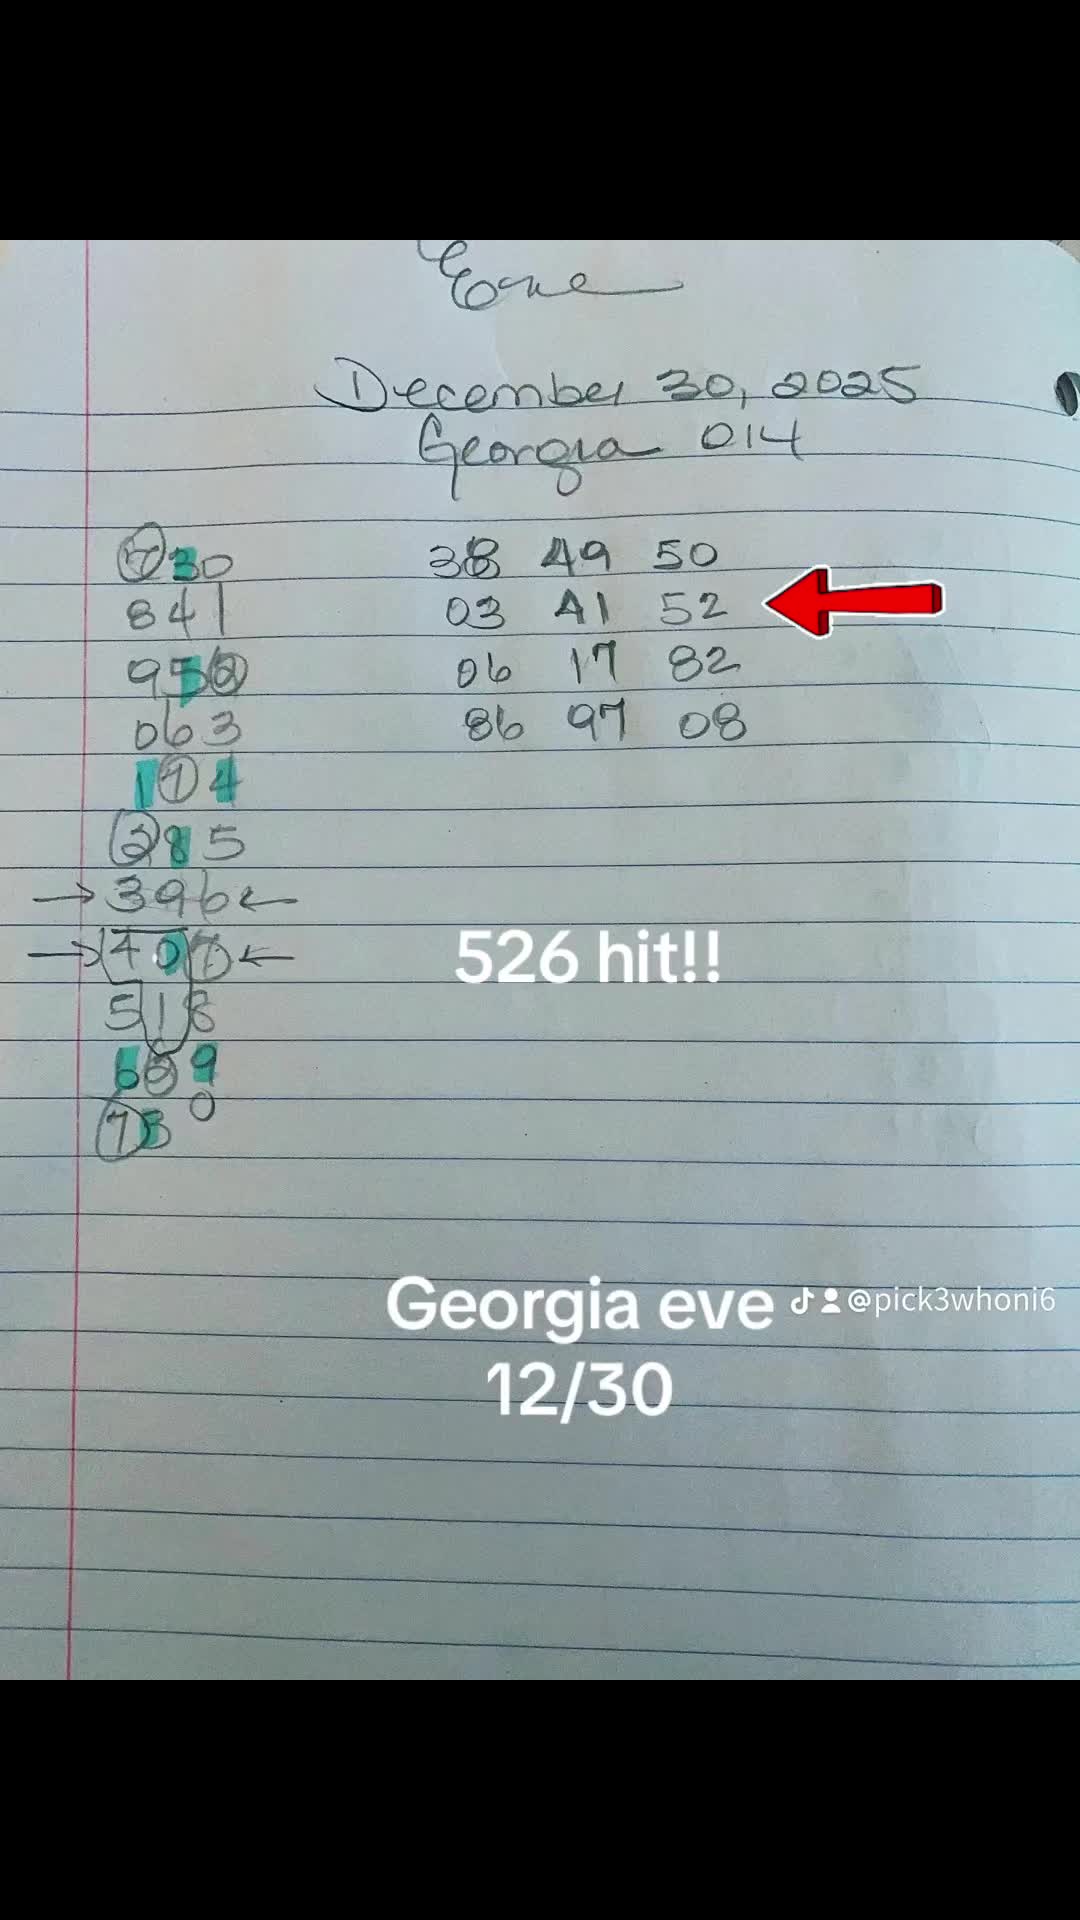 Eve
December 30, 2025
Georgia 014
730 38 49 50
841 03 41 52
952 06 17 82
063 86 97 08
174
285
→ 396 ←
→ 407 ←
526 hit!!
518
629
0
73
Georgia eve
@pick3whoni6
12/30